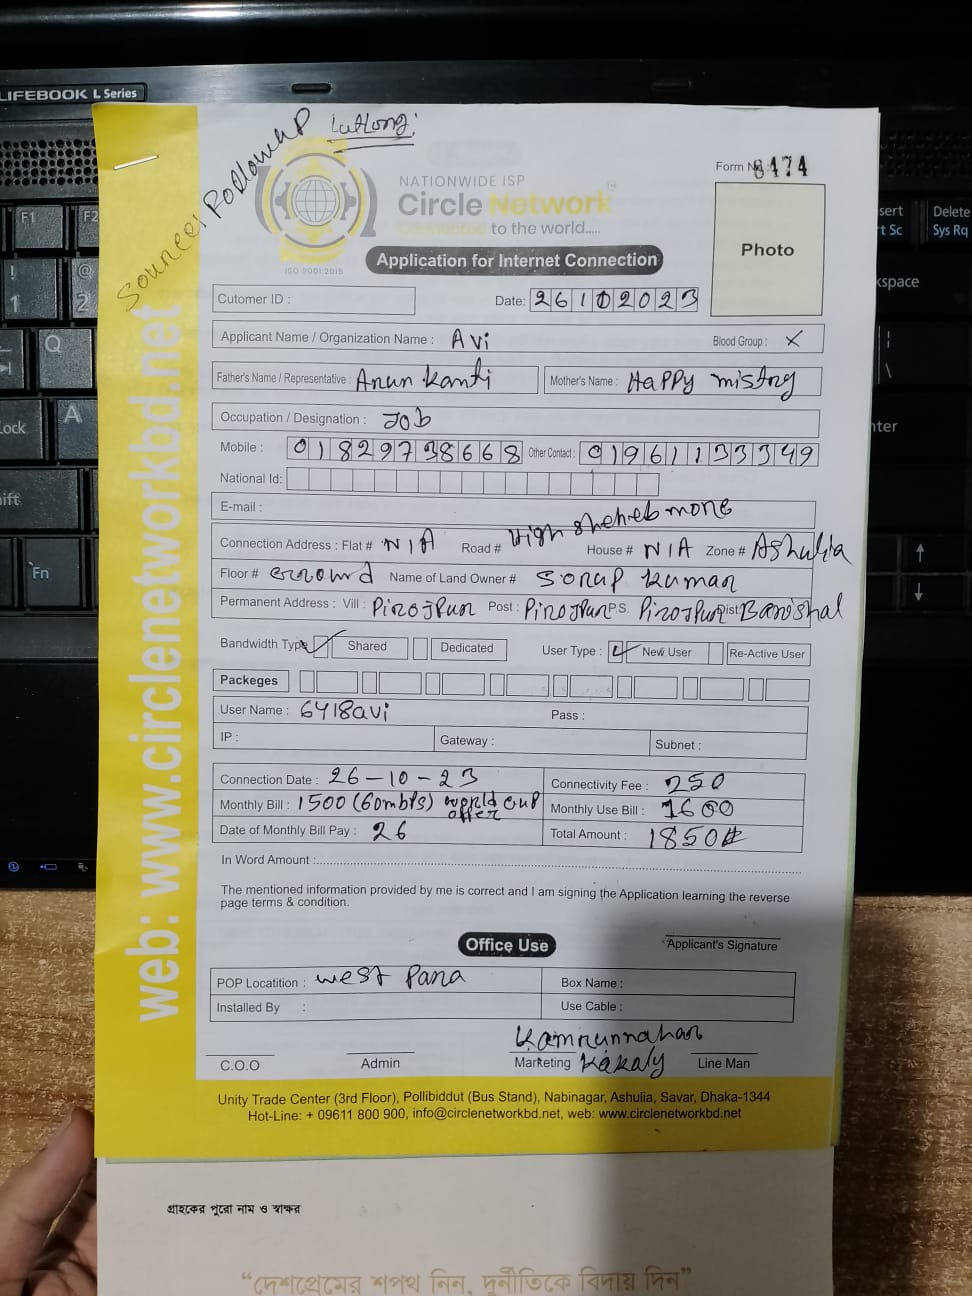 LIFEBOOK L Series
Followup
Form No 6474
NATIONWIDE ISP
Circle Network
Connected to the world.....
ISO 9001:2015
Application for Internet Connection
Photo
Cutomer ID :
Date: 26102023
Applicant Name / Organization Name : Avi
Blood Group : X
Father's Name / Representative : Arun Kanti
Mother's Name : Happy mistry
Occupation / Designation : Job
Mobile : 01829738668 Other Contact : 01961133349
National Id:
E-mail :
Connection Address : Flat # N/A Road # House # N/A Zone # Ashulia
Floor # Name of Land Owner # Sorup Kumar
Permanent Address : Vill : Pirojpur Post : Pirojpur P.S. Pirojpur Dist: Barishal
Bandwidth Type Shared Dedicated User Type : New User Re-Active User
Packeges
User Name : 6418avi Pass :
IP : Gateway : Subnet :
Connection Date : 26-10-23 Connectivity Fee : 250
Monthly Bill : 1500 (60mbps) world cup offer Monthly Use Bill : 1600
Date of Monthly Bill Pay : 26 Total Amount : 1850
In Word Amount :
The mentioned information provided by me is correct and I am signing the Application learning the reverse
page terms & condition.
Applicant's Signature
Office Use
POP Locatition : west Para Box Name :
Installed By : Use Cable :
Kamrunnahar
C.O.O Admin Marketing Kakaly Line Man
web: www.circlenetworkbd.net
Unity Trade Center (3rd Floor), Pollibiddut (Bus Stand), Nabinagar, Ashulia, Savar, Dhaka-1344
Hot-Line: + 09611 800 900, info@circlenetworkbd.net, web: www.circlenetworkbd.net
গ্রাহকের পুরো নাম ও স্বাক্ষর
“দেশপ্রেমের শপথ নিন, দুর্নীতিকে বিদায় দিন”